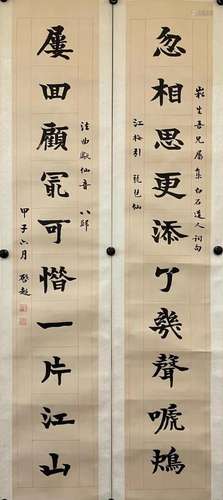 崧生吾兄屬集白石道人詞句
忽相思更添了幾聲嗁鴂
江梅引 琵琶仙
法曲獻仙音 八歸
屢回顧冣可惜一片江山
甲子六月 啟超